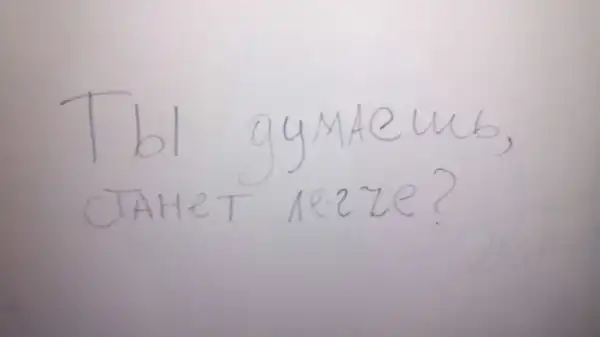 Ты думаешь,
станет легче?